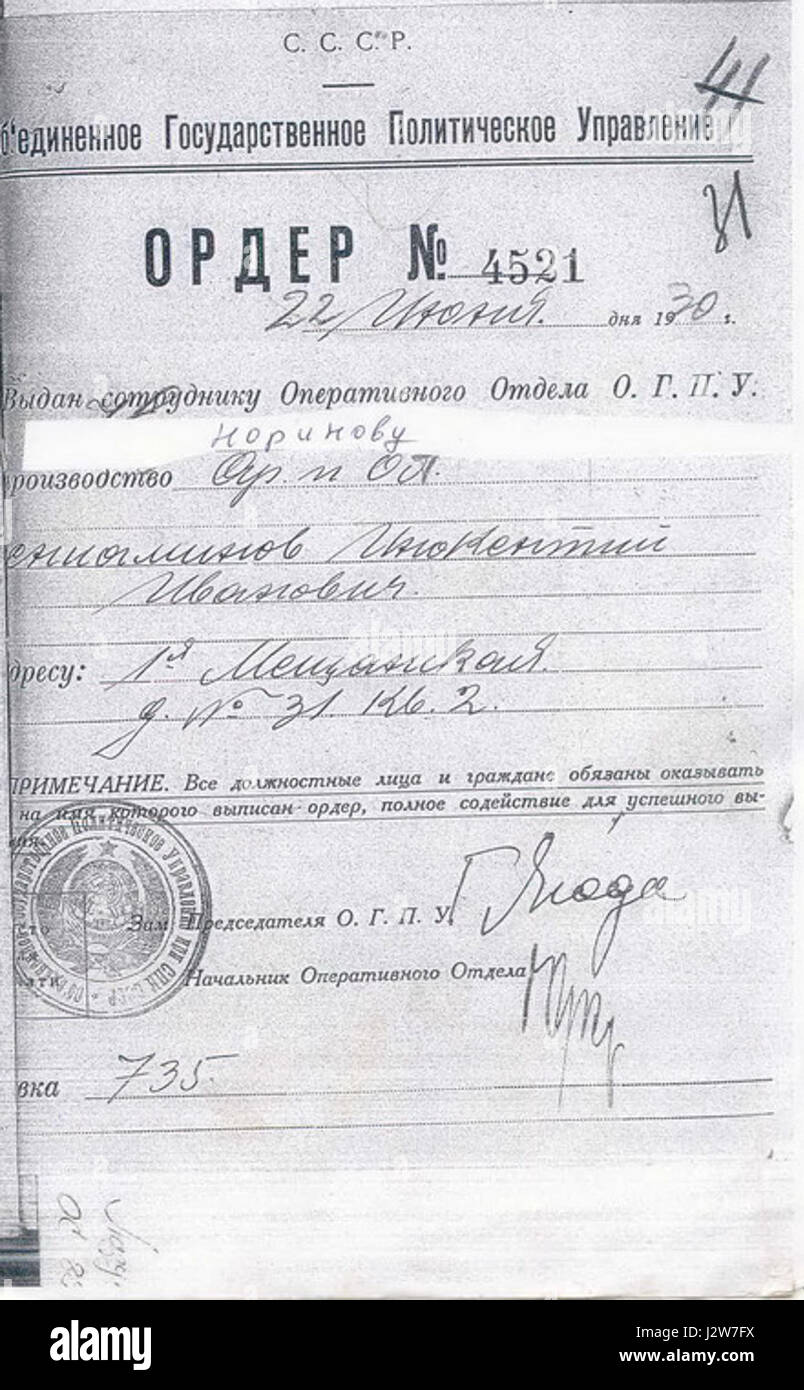 С. С. С. Р.
41
б'единенное Государственное Политическое Управление
31
ОРДЕР № 4521
22 Июня дня 1930 г.
Выдан сотруднику Оперативного Отдела О. Г. П. У.
Норинову
роизводство Ар. и Об.
ениаминов Инокентий
Иванович.
дресу: 1я Мещанская
д. № 31. Кв. 2.
ПРИМЕЧАНИЕ. Все должностные лица и граждане обязаны оказывать
на имя которого выписан ордер, полное содействие для успешного вы-
ния.
Зам Председателя О. Г. П. У. Г Ягода
Начальник Оперативного Отдела
вка 735.
alamy
Image ID: 2JW7FX
www.alamy.com